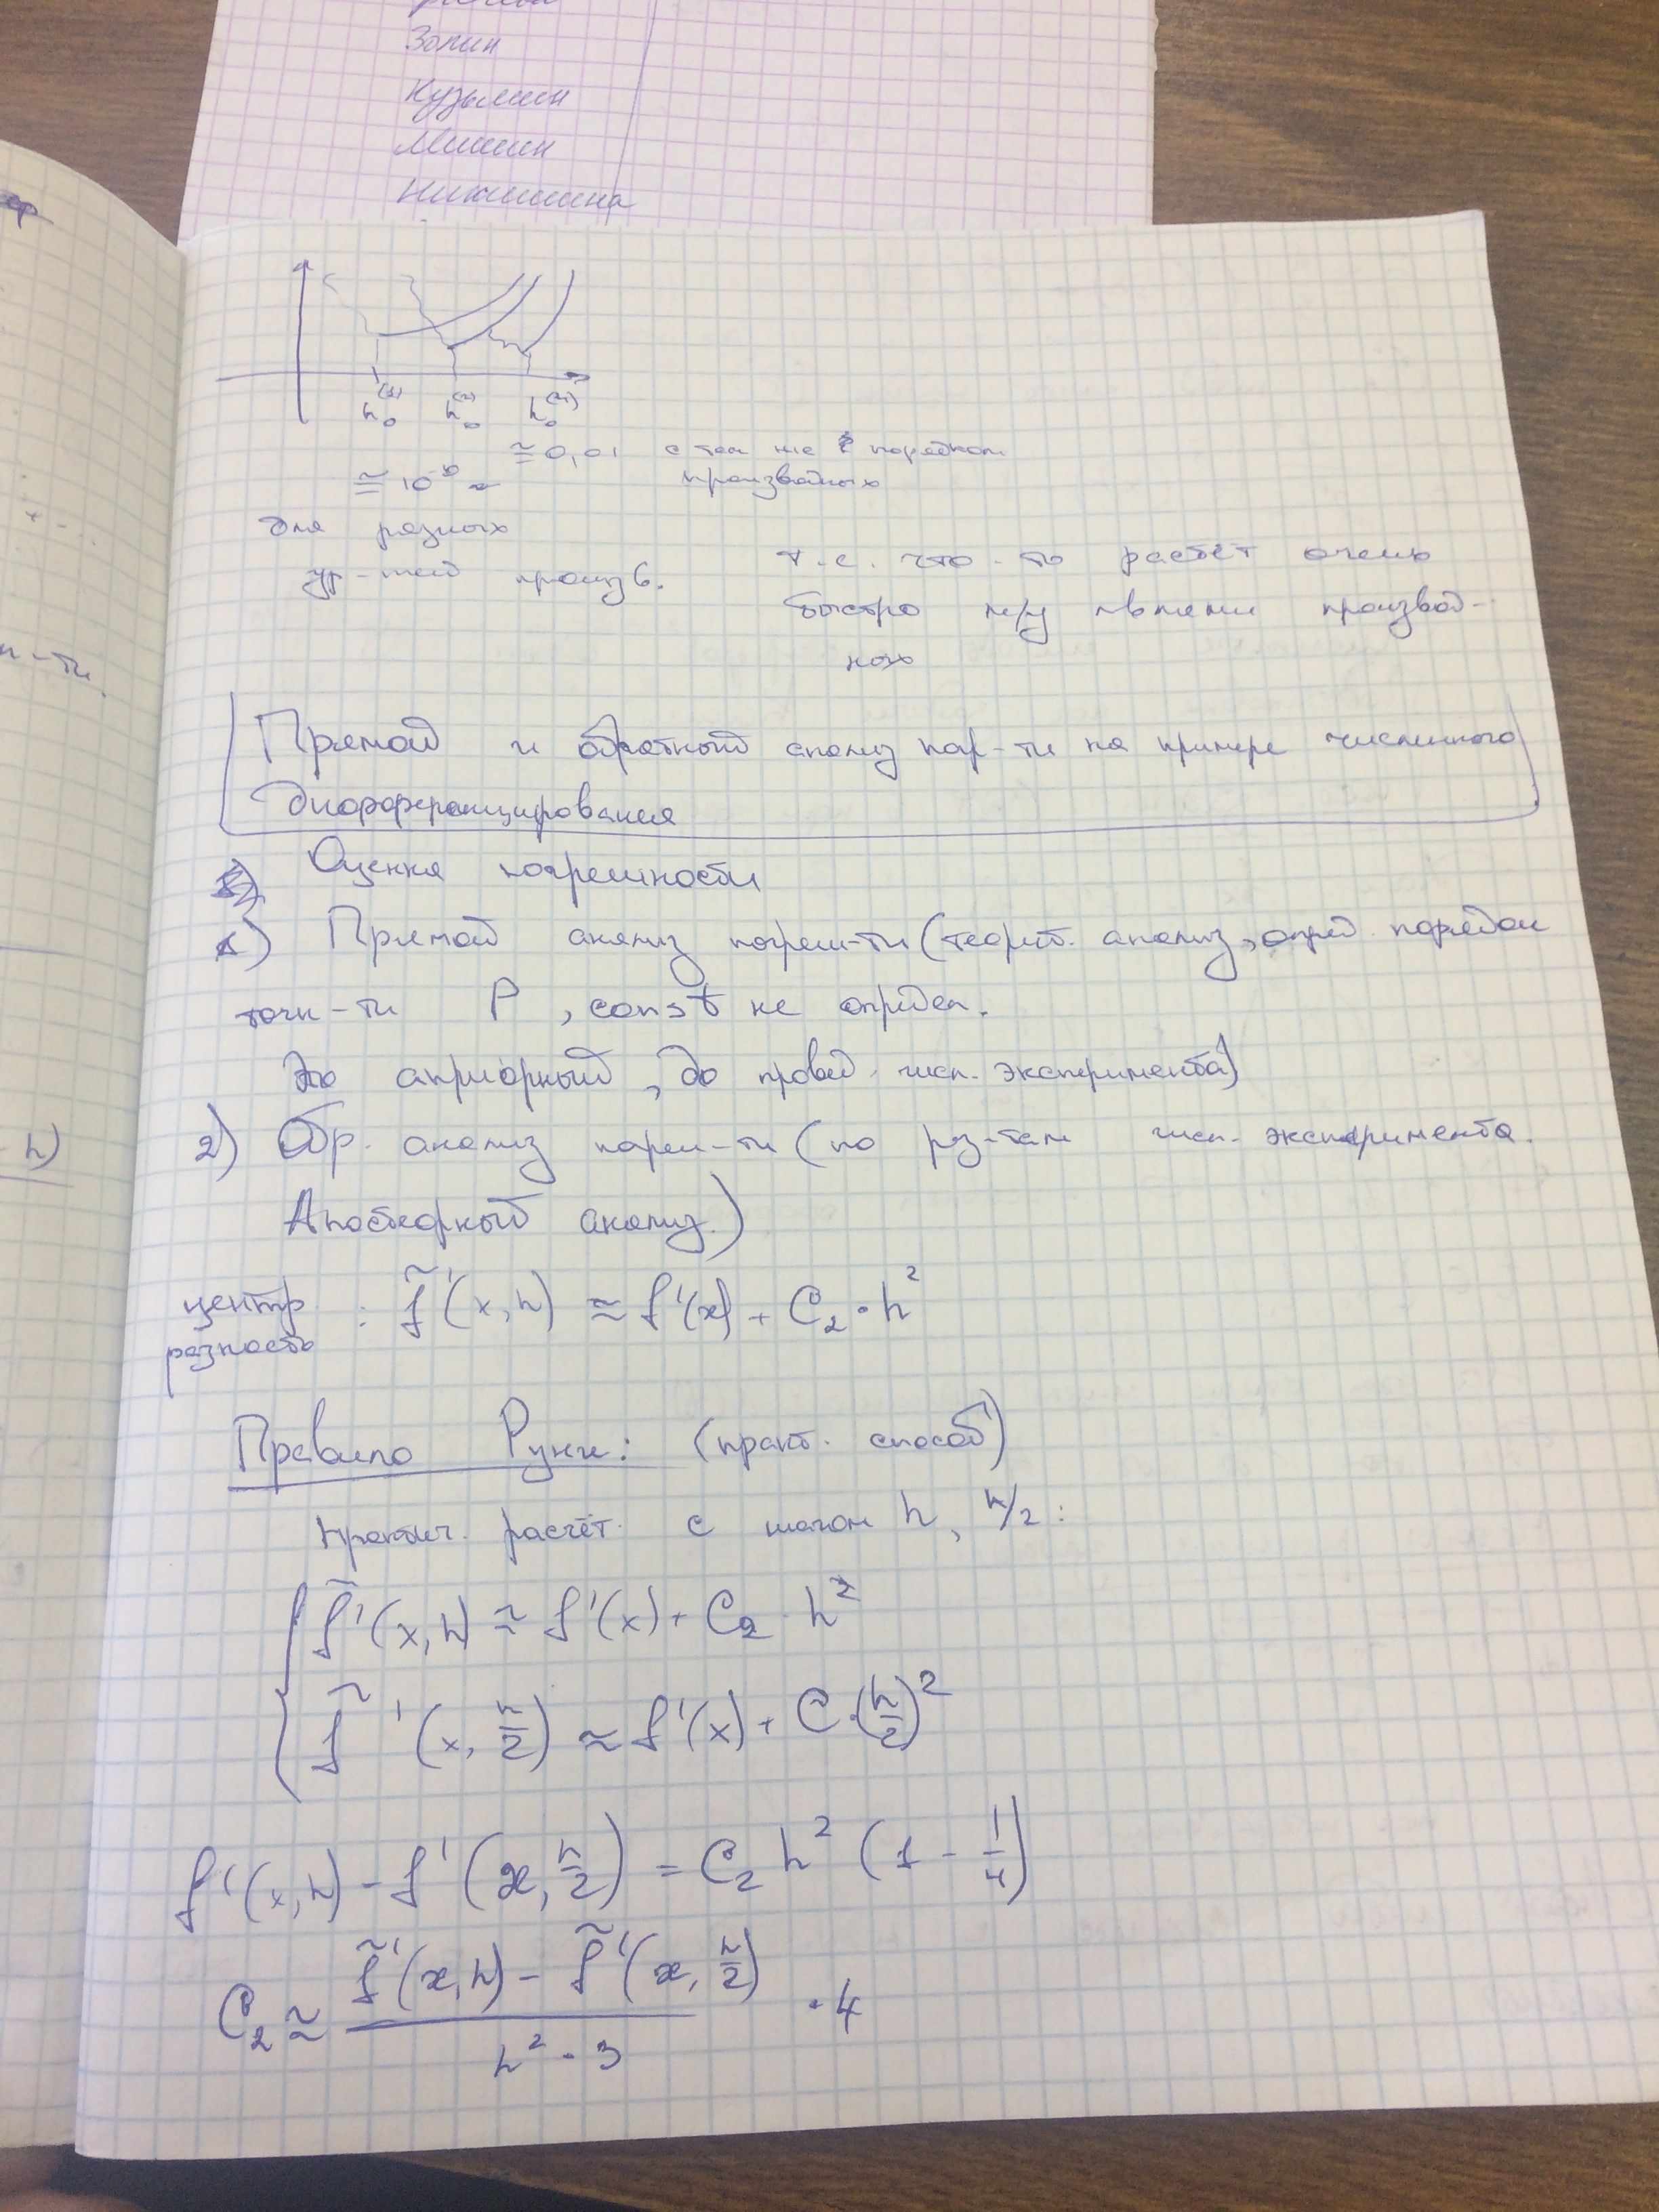 Золин
Кузьмин
Мишин
Никишина
h₀⁽¹⁾ h₀⁽²⁾ h₀
≅ 0,01 с тем же порядком
≅ 10 производных
для разных
ур-ний произв.
т.е. что-то растёт очень
быстро м/у производ-
ных
Прямой и обратный анализ пог-ти на примере численного
дифференцирования
Оценка погрешности
1) Прямой анализ погреш-ти (теорет. анализ, опред. порядок
точн-ти P, const не опредеп.
Это априорный, до провед. числ. эксперимента)
2) Обр. анализ погреш-ти (по рез-там числ. эксперимента.
Апостерорный анализ.)
центр. разность : f̃'(x, h) ≈ f'(x) + C₂ · h²
Правило Рунге: (практ. способ)
практич. расчёт с шагом h, h/2 :
f̃'(x, h) ≈ f'(x) + C₂ · h²
f̃'(x, h/2) ≈ f'(x) + C · (h/2)²
f'(x, h) - f'(x, h/2) = C₂ h² (1 - 1/4)
C₂ ≈ (f̃'(x, h) - f̃'(x, h/2)) / (h² · 3) · 4
н-ти.
- h)